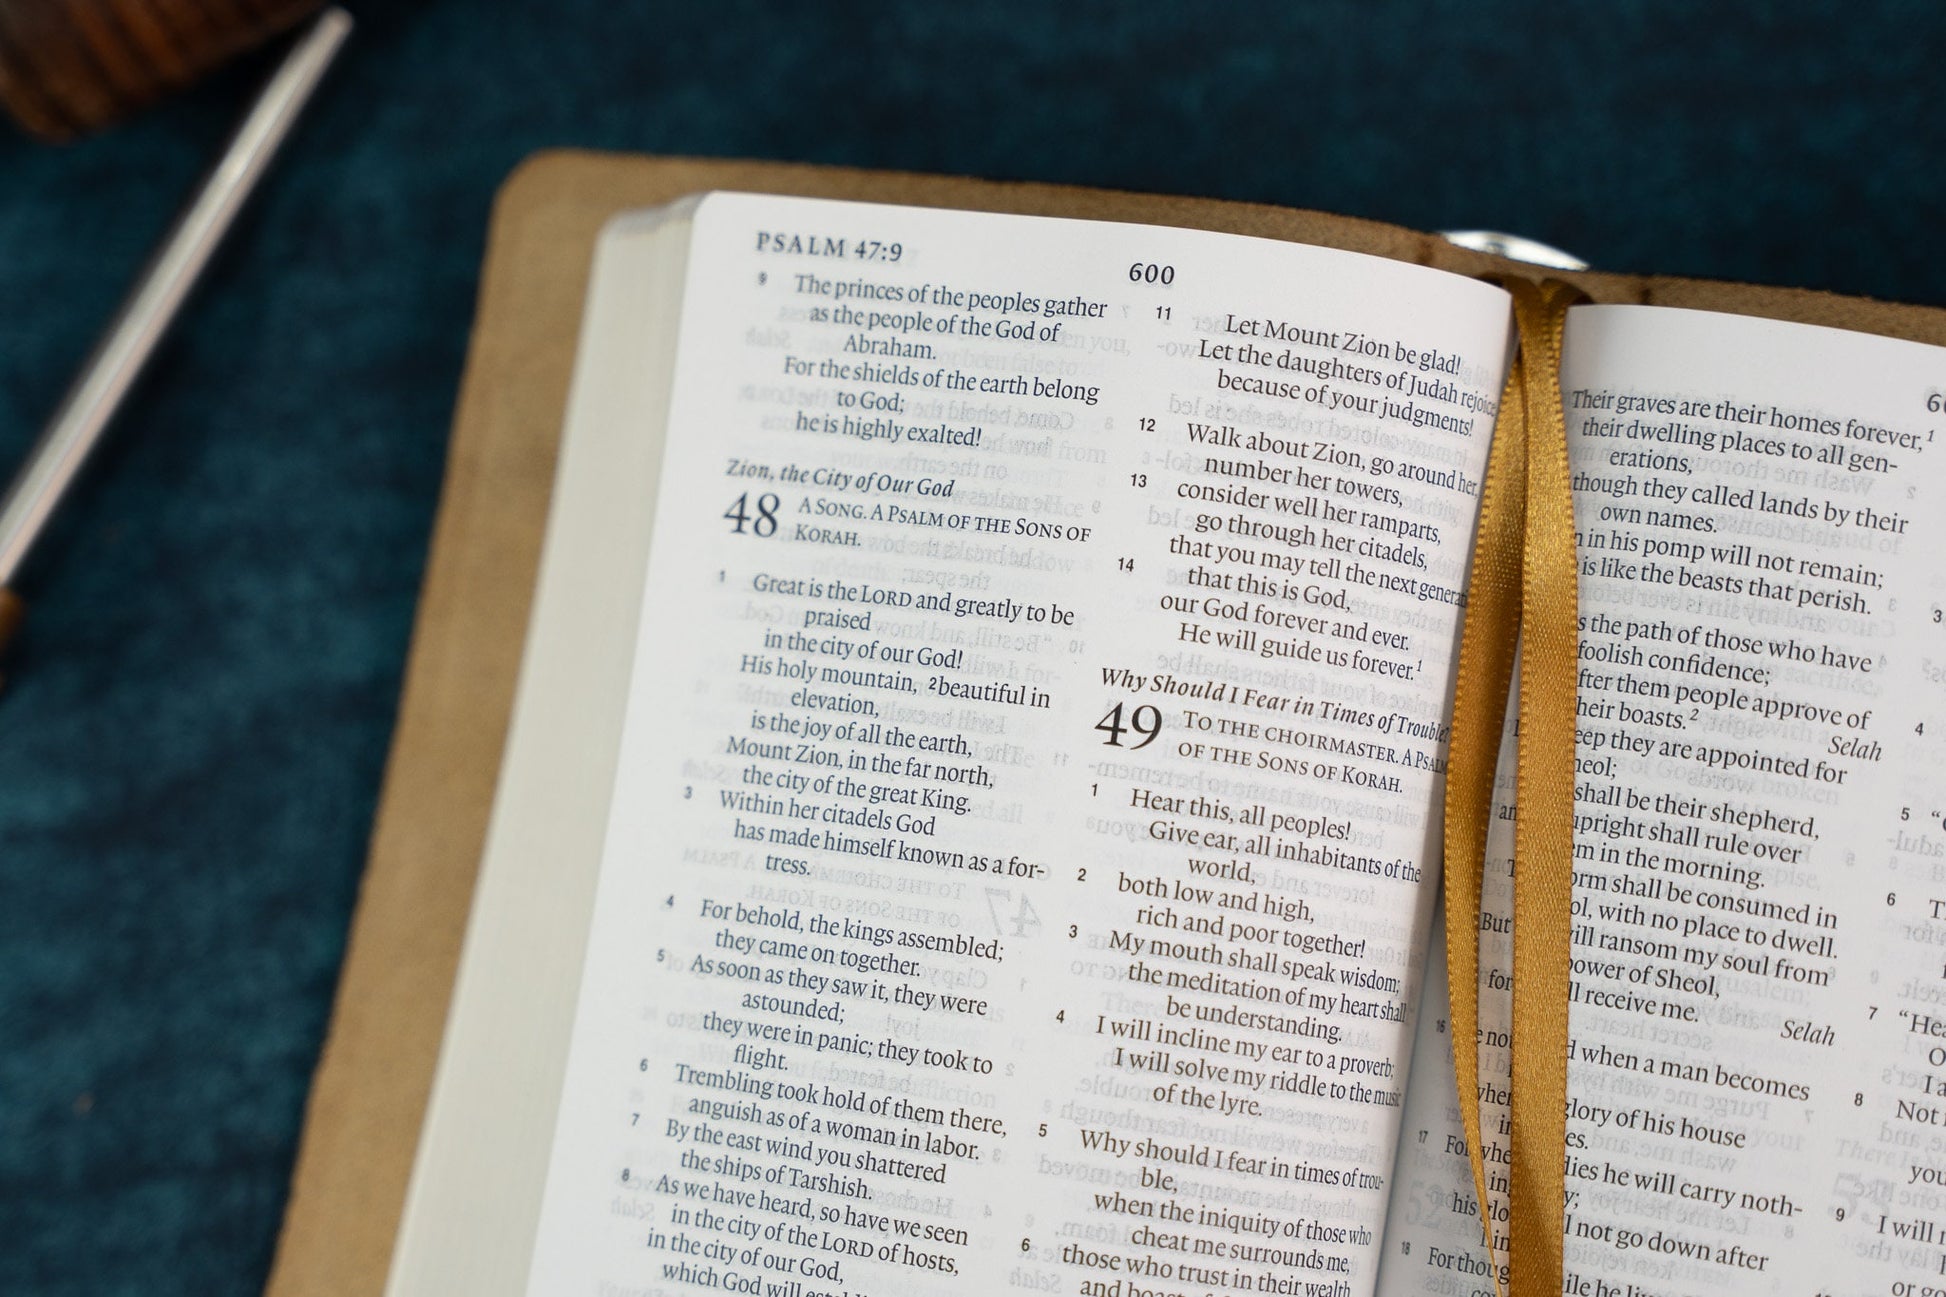 PSALM 47:9
600
9 The princes of the peoples gather
as the people of the God of
Abraham.
For the shields of the earth belong
to God;
he is highly exalted!
Zion, the City of Our God
48 A SONG. A PSALM OF THE SONS OF
KORAH.
1 Great is the LORD and greatly to be
praised
in the city of our God!
His holy mountain, 2 beautiful in
elevation,
is the joy of all the earth,
Mount Zion, in the far north,
the city of the great King.
3 Within her citadels God
has made himself known as a for-
tress.
4 For behold, the kings assembled;
they came on together.
5 As soon as they saw it, they were
astounded;
they were in panic; they took to
flight.
6 Trembling took hold of them there,
anguish as of a woman in labor.
7 By the east wind you shattered
the ships of Tarshish.
8 As we have heard, so have we seen
in the city of the LORD of hosts,
in the city of our God,
which God will
11 Let Mount Zion be glad!
Let the daughters of Judah rejoice
because of your judgments!
12 Walk about Zion, go around her,
number her towers,
13 consider well her ramparts,
go through her citadels,
that you may tell the next
14 that this is God,
our God forever and ever.
He will guide us forever.1
Why Should I Fear in Times of Trouble?
49 TO THE CHOIRMASTER. A PSALM
OF THE SONS OF KORAH.
1 Hear this, all peoples!
Give ear, all inhabitants of the
world,
2 both low and high,
rich and poor together!
3 My mouth shall speak wisdom;
the meditation of my heart shall
be understanding.
4 I will incline my ear to a proverb;
I will solve my riddle to the music
of the lyre.
5 Why should I fear in times of trou-
ble,
when the iniquity of those who
cheat me surrounds me,
6 those who trust in their wealth
and
Their graves are their homes forever,1
their dwelling places to all gen-
erations,
though they called lands by their
own names.
in his pomp will not remain;
is like the beasts that perish.
the path of those who have
foolish confidence;
after them people approve of
their boasts.2 Selah
they are appointed for
shall be their shepherd,
upright shall rule over
in the morning.
shall be consumed in
with no place to dwell.
will ransom my soul from
power of Sheol,
receive me. Selah
16
when a man becomes
glory of his house
17 For
he will carry noth-
his
not go down after
18 For
he
3
4
5
6
7
8 Not
9 I will